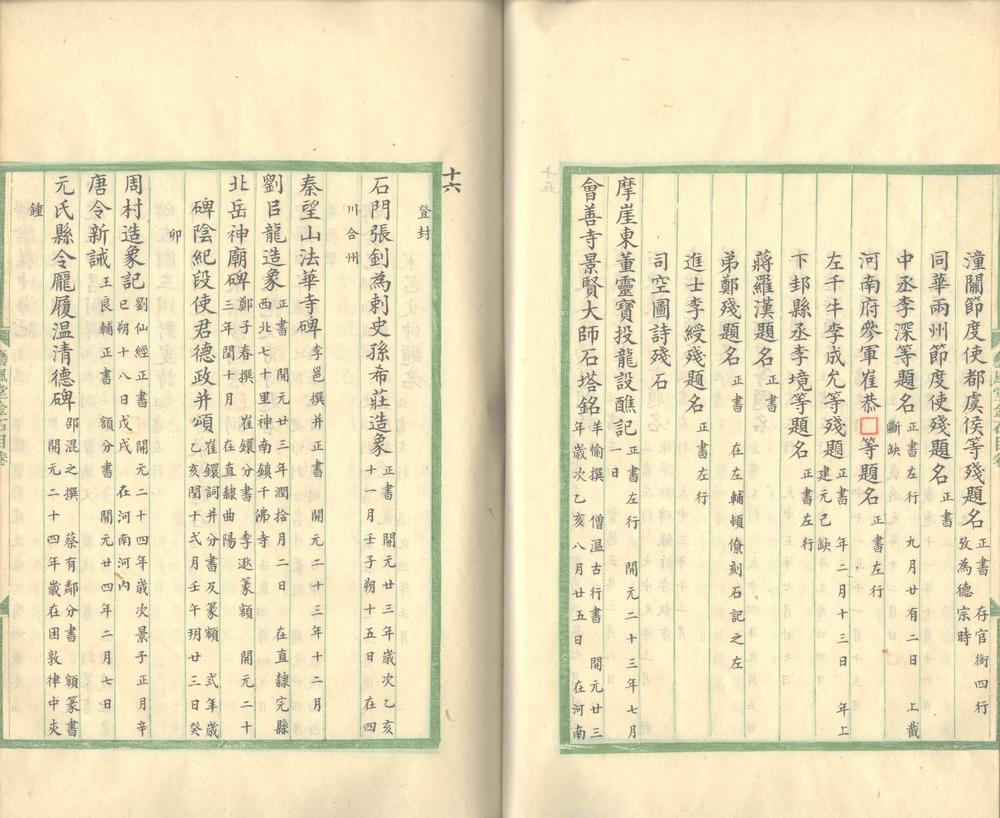 潼關節度使都虞侯等殘題名 正書 存官銜四行 攷為德宗時
同華兩州節度使殘題名 正書
中丞李深等題名 正書左行 九月廿有二日 上截斷缺
河南府參軍崔恭□等題名 正書左行
左千牛李成允等殘題 正書 年二月十三日 年上建元已缺
卞邽縣丞李境等題名 正書左行
蔣羅漢題名 正書
弟鄭殘題名 正書 在左輔頓僚刻石記之左
進士李綬殘題名 正書左行
司空圖詩殘石
摩崖東董靈寶投龍設醮記 正書左行 開元二十三年七月一日
會善寺景賢大師石塔銘 羊愉撰 僧温古行書 開元廿三年歲次乙亥八月廿五日 在河南
登封
石門張釗為刺史孫希莊造象 正書 開元廿三年歲次乙亥十一月壬子朔十五日 在四
川合州
秦望山法華寺碑 李邕撰并正書 開元二十三年十二月
劉臣龍造象 正書 開元廿三年潤拾月二日 在直隸完縣西北七十里神南鎮千佛寺
北岳神廟碑 鄭子春撰 崔鐶分書 李逖篆額 開元二十三年閏十月 在直隸曲陽
碑陰紀段使君德政并頌 崔鐶詞并分書及篆額 弍年歲乙亥閏十弍月壬午玥廿三日癸
卯
周村造象記 劉仙經正書 開元二十四年歲次景子正月辛巳朔十八日戊戌 在河南河内
唐令新誡 王良輔正書 額分書 開元廿四年二月七日
元氏縣令龐履温清德碑 邵混之撰 蔡有鄰分書 額篆書 開元二十四年歲在困敦律中夾
鍾
十六